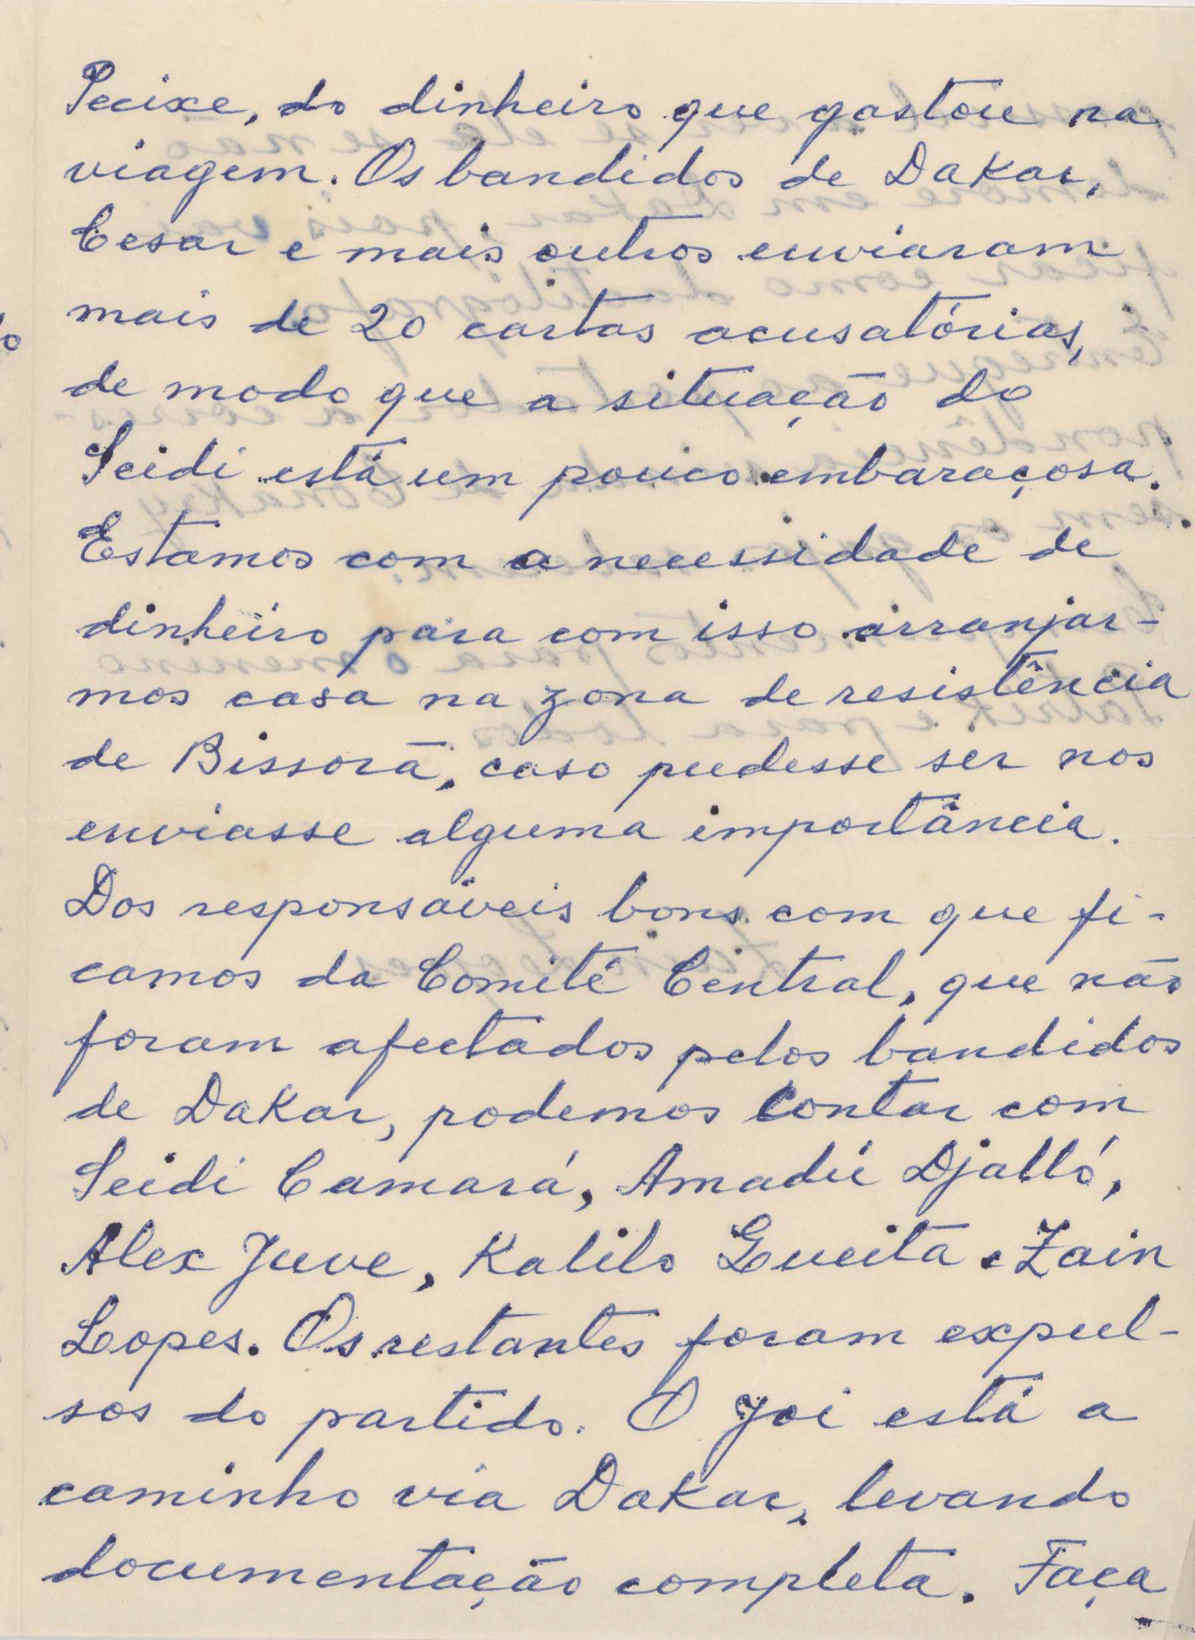 Pecixe, do dinheiro que gastou na
viagem. Os bandidos de Dakar,
Cesar e mais outros enviaram
mais de 20 cartas acusatórias,
de modo que a situação do
Seidi está um pouco embaraçosa.
Estamos com a necessidade de
dinheiro para com isso arranjar-
mos casa na zona de resistência
de Bissorã, caso pudesse ser nos
enviasse alguma importância.
Dos responsáveis bons com que fi-
camos da Comité Central, que não
foram afectados pelos bandidos
de Dakar, podemos contar com
Seidi Camará, Amadú Djalló,
Alex Juve, Kalilo Gueita e Zain
Lopes. Os restantes foram expul-
sos do partido. O Joi está a
caminho via Dakar, levando
documentação completa. Faça